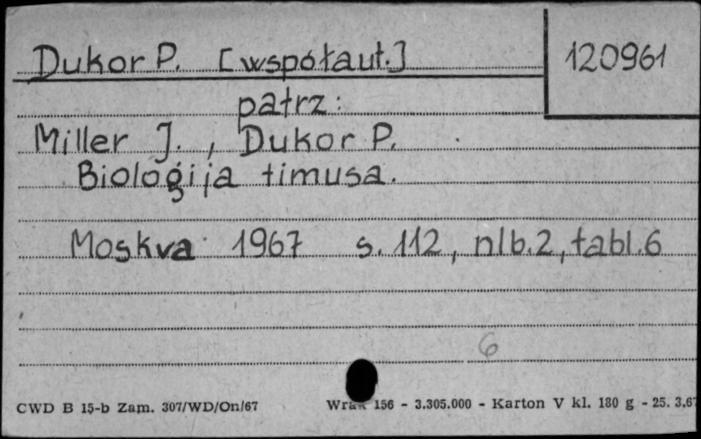 Dukor P. [współaut.] 120961
patrz:
Miller J., Dukor P.
Biologija timusa.
Moskva 1967 s. 112, nlb.2, tabl.6
6
CWD B 15-b Zam. 307/WD/On/67 156 - 3.305.000 - Karton V kl. 180 g - 25. 3.67